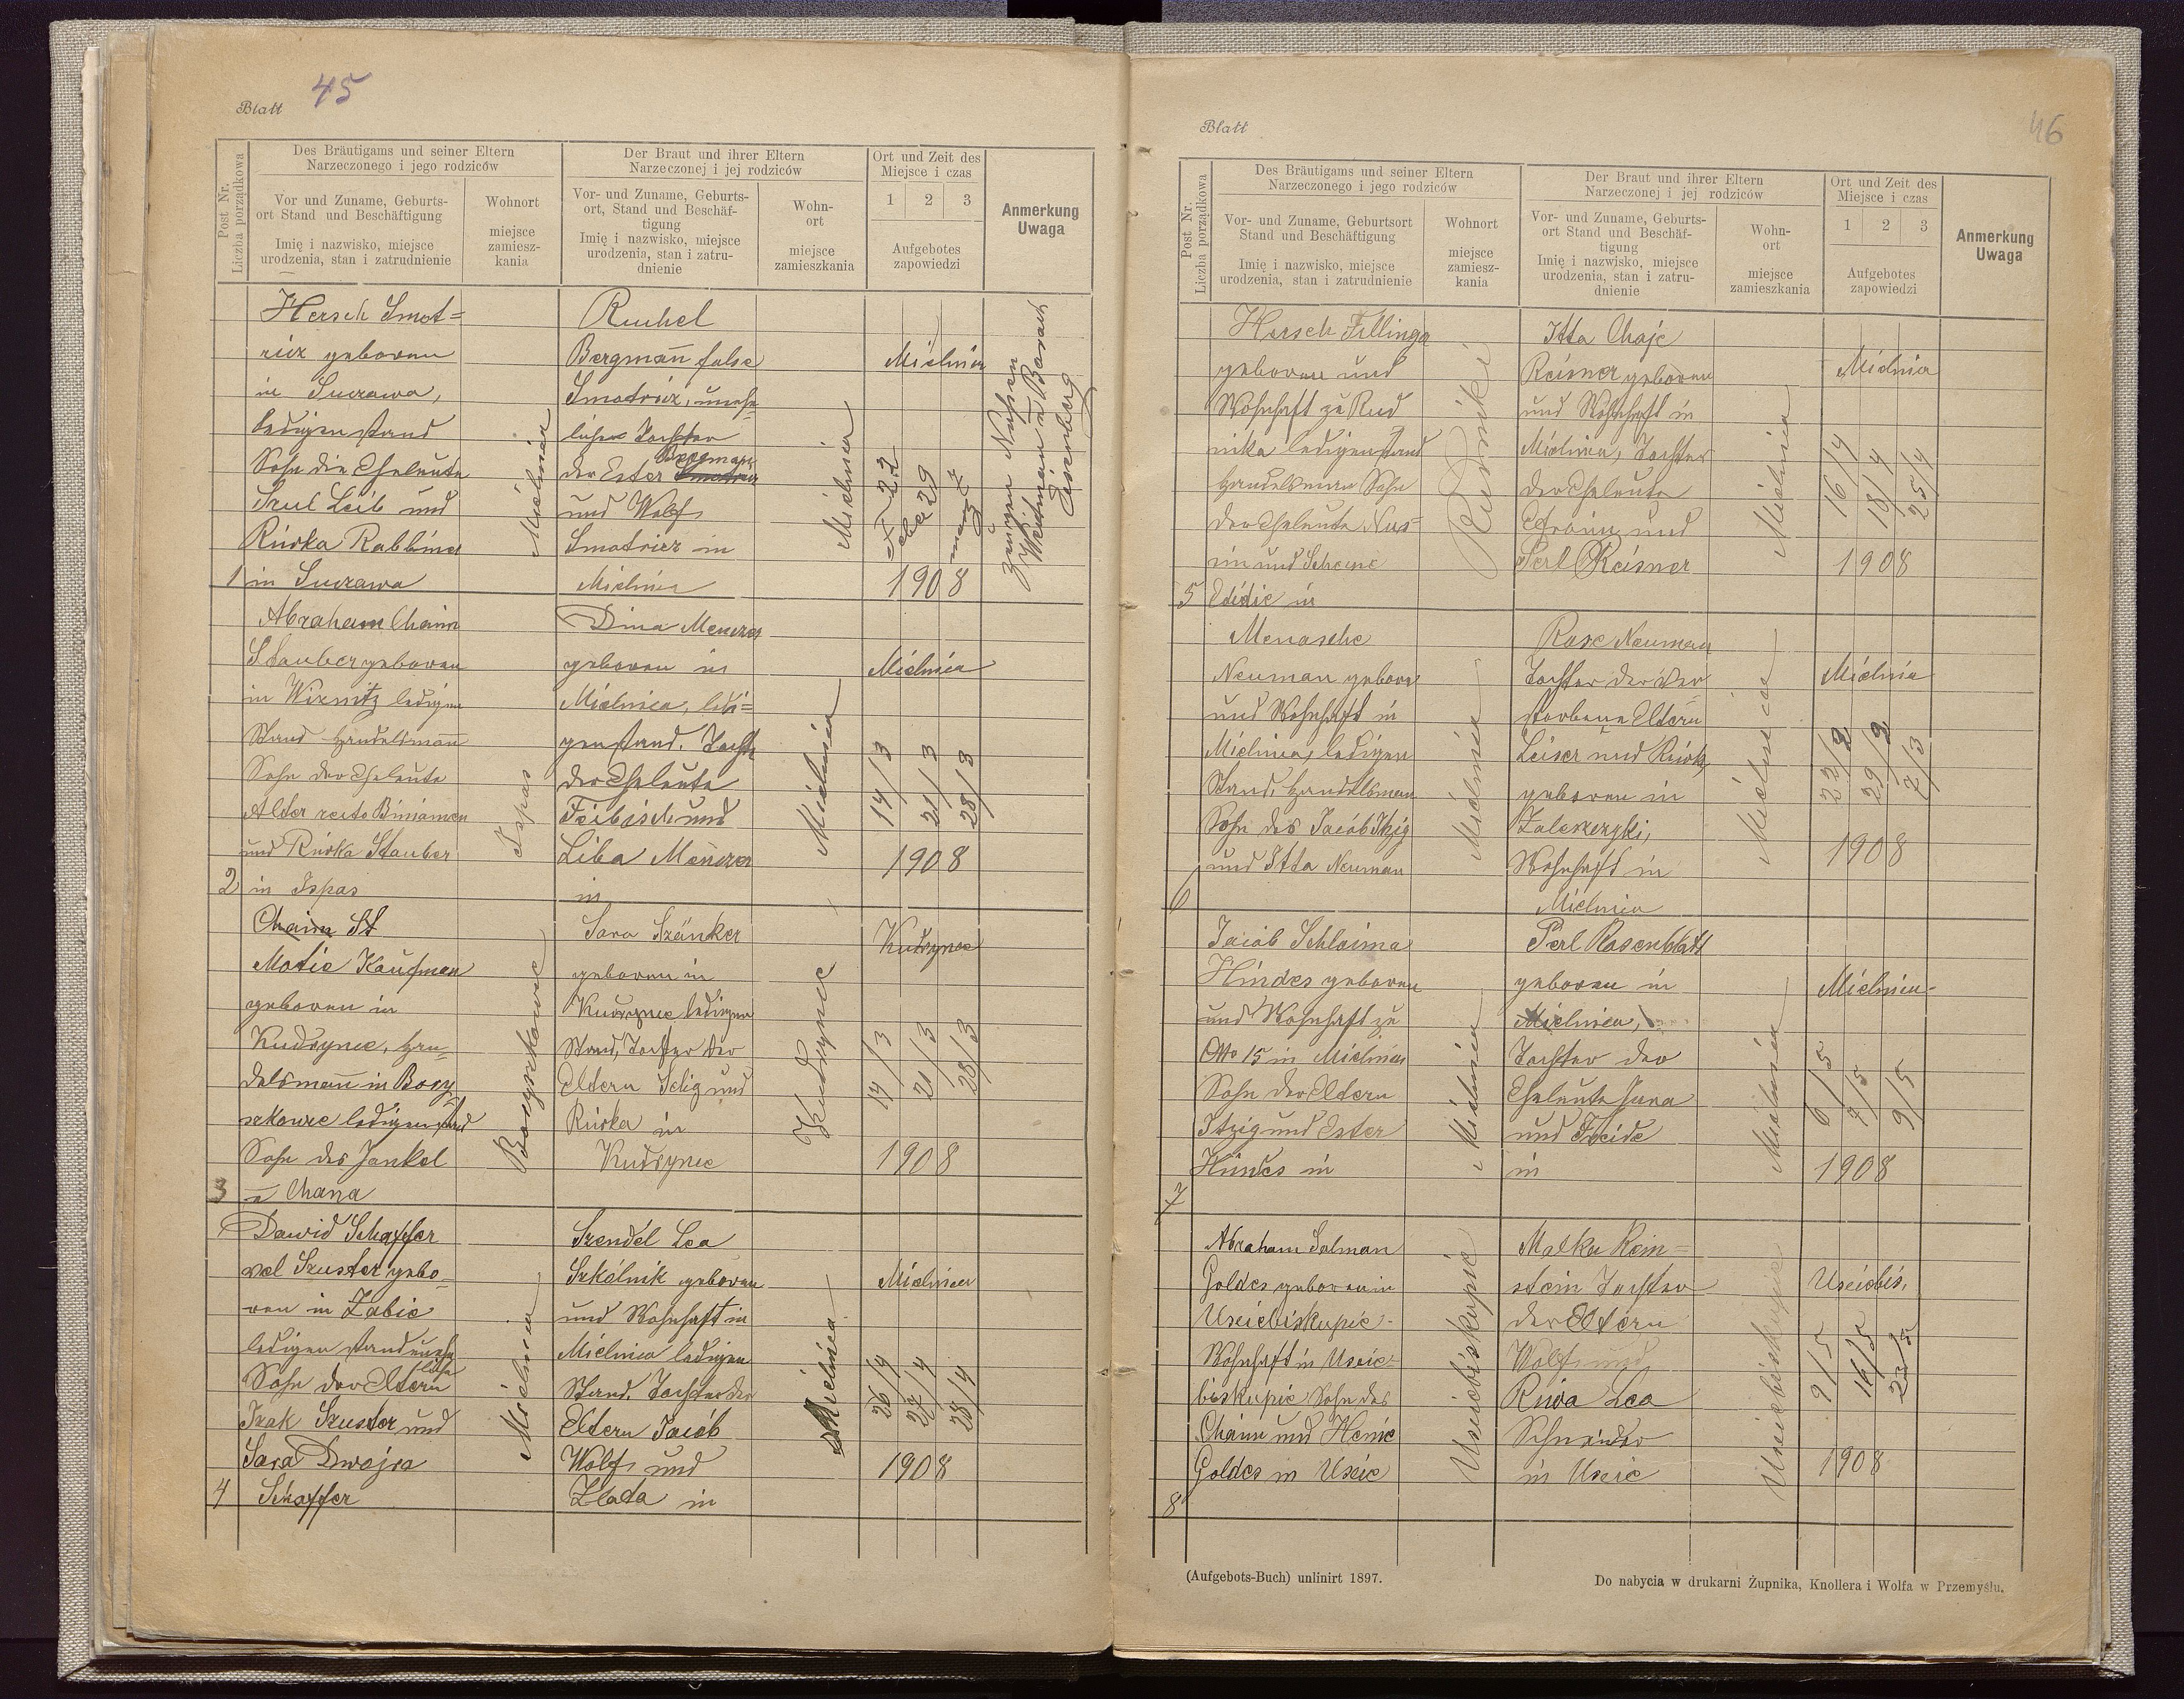 Blatt 45
Post Nr.
Liczba porządkowa
Des Bräutigams und seiner Eltern
Narzeczonego i jego rodziców
Vor und Zuname, Geburts-
ort Stand und Beschäftigung
Imię i nazwisko, miejsce
urodzenia, stan i zatrudnienie
Wohnort
miejsce
zamiesz-
kania
Der Braut und ihrer Eltern
Narzeczonej i jej rodziców
Vor- und Zuname, Geburts-
ort, Stand und Beschäf-
tigung
Imię i nazwisko, miejsce
urodzenia, stan i zatru-
dnienie
Wohn-
ort
miejsce
zamieszkania
Ort und Zeit des
Miejsce i czas
1 2 3
Aufgebotes
zapowiedzi
Anmerkung
Uwaga
1
Hersch Smot=
ricz geboren
in Suczawa,
ledigen stand
Sohn die Eheleute
Srul Leib und
Riwka Rabbiner
in Suczawa
Mielnica
Ruchel
Bergmann false
Smotricz, unehe=
licher Tochter
der Ester Bergmann
und Wolf
Smotricz in
Mielnica
Mielnica
Mielnica
22
29
1908
Zeugen Nussen
Weitman u Baruch
Eisenberg
2
Abraham Chaim
Stauber geboren
in Wiznitz ledigen
Stand Handelsmann
Sohn der Eheleute
Alter recte Biniamen
und Riwka Stauber
in Ispas
Ispas
Dina Menczer
geboren in
Mielnica, ledi=
gen stand. Tochter
der Eheleute
Feibisch und
Liba Menczer
in
Mielnica
Mielnica
14/3 21/3 28/3
1908
3
Chaim St
Motie Kaufman
geboren in
Kudrynce, Han=
delsmann in Bory
szkowce ledigen stand
Sohn des Jankel
u Chana
Boryszkowce
Sara Szänker
geboren in
Kudrynce ledigen
Stand, Tochter der
Eltern Selig und
Riwka in
Kudrynce
Kudrynce
Kudrynce
14/3 21/3 28/3
1908
4
Dawid Schaffer
vel Szuster gebo=
ren in Zabie
ledigen stand unehe
liche
Sohn der Eltern
Izak Szuster und
Sara Dwojra
Schaffer
Mielnica
Szendel Lea
Szkolnik geboren
und Wohnhaft in
Mielnica ledigen
Stand, Tochter der
Eltern Jacob
Wolf und
Zlata in
Mielnica
Mielnica
26/4 27/4 28/4
1908
Blatt 46
Post Nr.
Liczba porządkowa
Des Bräutigams und seiner Eltern
Narzeczonego i jego rodziców
Vor- und Zuname, Geburtsort
Stand und Beschäftigung
Imię i nazwisko, miejsce
urodzenia, stan i zatrudnienie
Wohnort
miejsce
zamiesz-
kania
Der Braut und ihrer Eltern
Narzeczonej i jej rodziców
Vor- und Zuname, Geburts-
ort Stand und Beschäf-
tigung
Imię i nazwisko, miejsce
urodzenia, stan i zatru-
dnienie
Wohn-
ort
miejsce
zamieszkania
Ort und Zeit des
Miejsce i czas
1 2 3
Aufgebotes
zapowiedzi
Anmerkung
Uwaga
5
Hersch Fillinger
geboren und
Wohnhaft zu Rud
nika ledigen stand
Handelsman Sohn
der Eheleute Nus=
in und Scheine
Edidie in
Rudniki
Itta Chaje
Reisner geboren
und Wohnhaft in
Mielnica, Tochter
der Eheleute
Efroim und
Perl Reisner
Mielnica
Mielnica
16/4 18/4 25/4
1908
6
Menasche
Neuman geboren
und Wohnhaft in
Mielnica, ledigen
Stand, Handelsman
Sohn des Jacob Itzig
und Itta Neuman
Mielnica
Rose Neuman
Tochter der Ver
storbene Eltern
Leiser und Riwka
geboren in
Zaleszczyki,
Wohnhaft in
Mielnica
Mielnica
Mielnica
22/2 29/2 7/3
1908
7
Jacob Schloima
Hindes geboren
und Wohnhaft zu
15 in Mielnica
Sohn der Eltern
Itzig und Ester
Hindes in
Mielnica
Perl Rosenblatt
geboren in
Mielnica,
Tochter der
Eheleute
und Freide
in
Mielnica
Mielnica
6/5 7/5 9/5
1908
8
Abraham Salman
Goldes geboren in
Usciebiskupie
Wohnhaft in Uscie=
biskupie Sohn des
Chaim und Henie
Goldes in Uscie
Usciebiskupie
Malka Rein=
stein Tochter
der Eltern
Wolf und
Riwa Lea
Schneider
in Uscie
Usciebiskupie
Usciebis.
9/5 16/5 23/5
1908
(Aufgebots-Buch) unlinirt 1897.
Do nabycia w drukarni Żupnika, Knollera i Wolfa w Przemyślu.